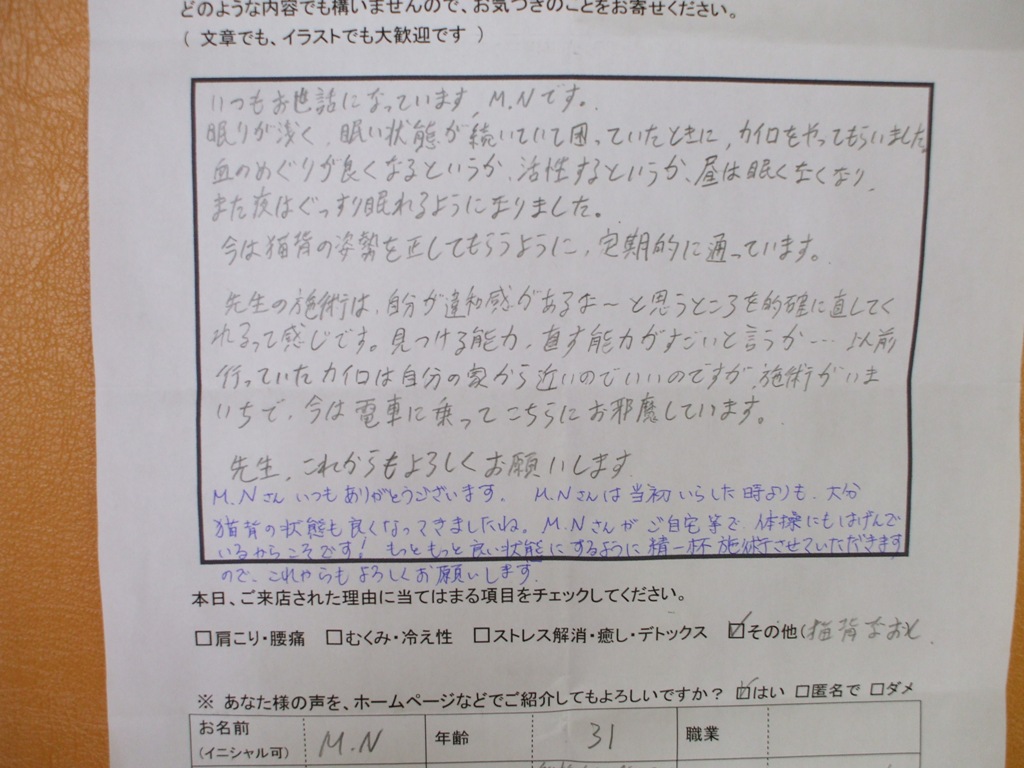 どのような内容でも構いませんので、お気づきのことをお寄せください。
( 文章でも、イラストでも大歓迎です )
いつもお世話になっています、M.Nです。
眠りが浅く、眠い状態が続いていて困っていたときに、カイロをやってもらいました。
血のめぐりが良くなるというか、活性するというか、昼は眠くなくなり、
また夜はぐっすり眠れるようになりました。
今は猫背の姿勢を正してもらうように、定期的に通っています。
先生の施術は、自分が違和感があるな～と思うところを的確に直してく
れるって感じです。見つける能力、直す能力がすごいと言うか… 以前
行っていたカイロは自分の家から近いのでいいのですが、施術がいま
いちで、今は電車に乗ってこちらにお邪魔しています。
先生、これからもよろしくお願いします
M.Nさんいつもありがとうございます。 M.Nさんは当初いらした時よりも、大分
猫背の状態も良くなってきましたね。M.Nさんがご自宅等で体操にもはげんで
いるからこそです! もっともっと良い状態にするように精一杯施術させていただきます
ので、これからもよろしくお願いします.
本日、ご来店された理由に当てはまる項目をチェックしてください。
□肩こり・腰痛 □むくみ・冷え性 □ストレス解消・癒し・デトックス ☑その他(猫背なおし
※ あなた様の声を、ホームページなどでご紹介してもよろしいですか? ☑はい □匿名で □ダメ
お名前 M.N 年齢 31 職業
(イニシャル可)